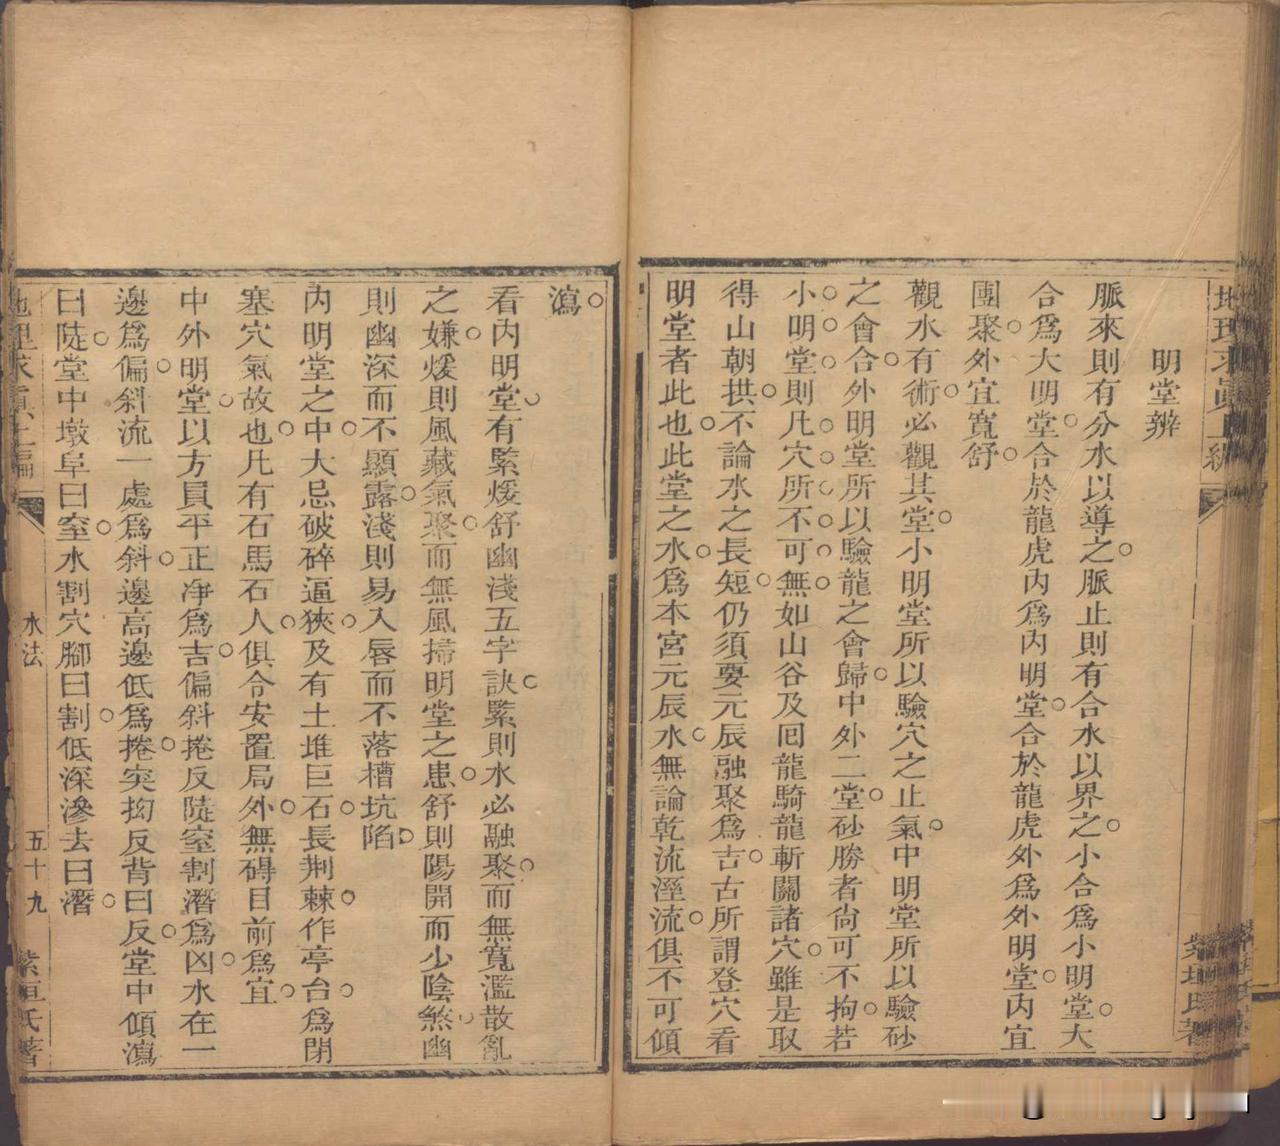 明堂辨
脈來則有分水以導之脈止則有合水以界之小合爲小明堂大
合爲大明堂合於龍虎內爲內明堂合於龍虎外爲外明堂內宜
團聚外宜寬舒
觀水有術必觀其堂小明堂所以驗穴之止氣中明堂所以驗砂
之會合外明堂所以驗龍之會歸中外二堂砂勝者尙可不拘若
小明堂則凡穴所不可無如山谷及囘龍騎龍斬關諸穴雖是取
得山朝拱不論水之長短仍須要元辰融聚爲吉古所謂登穴看
明堂者此也此堂之水爲本宮元辰水無論乾流溼流俱不可傾
瀉
看內明堂有緊煖舒幽淺五字訣緊則水必融聚而無寬濫散亂
之嫌煖則風藏氣聚而無風掃明堂之患舒則陽開而少陰煞幽
則幽深而不顯露淺則易入唇而不落槽坑陷
內明堂之中大忌破碎逼狹及有土堆巨石長荆棘作亭台爲閉
塞穴氣故也凡有石馬石人俱令安置局外無碍目前爲宜
中外明堂以方員平正净爲吉偏斜捲反陡室割潛爲凶水在一
邊爲偏斜流一處爲斜邊高邊低爲捲突抝反背曰反堂中傾瀉
曰陡堂中墩阜曰室水割穴腳曰割低深滲去曰潛
地理求眞上編
水法
五十九
紫垣氏著